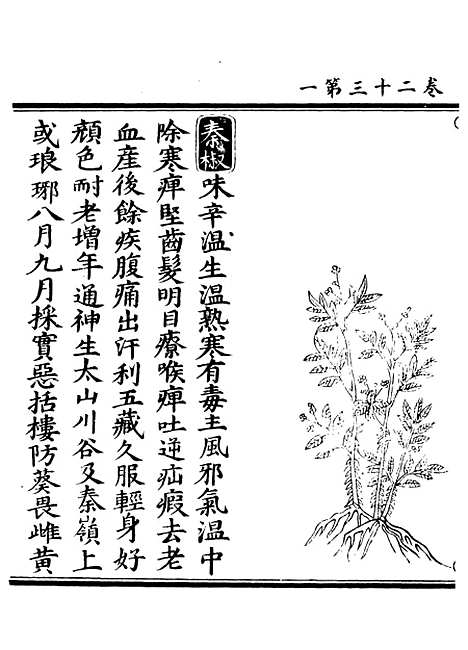 卷二十三第一
秦椒味辛溫生溫熟寒有毒主風邪氣溫中
除寒痺堅齒髮明目療喉痺吐逆疝瘕去老
血產後餘疾腹痛出汗利五藏久服輕身好
顏色耐老增年通神生太山川谷及秦嶺上
或琅琊八月九月採實惡括樓防葵畏雌黃